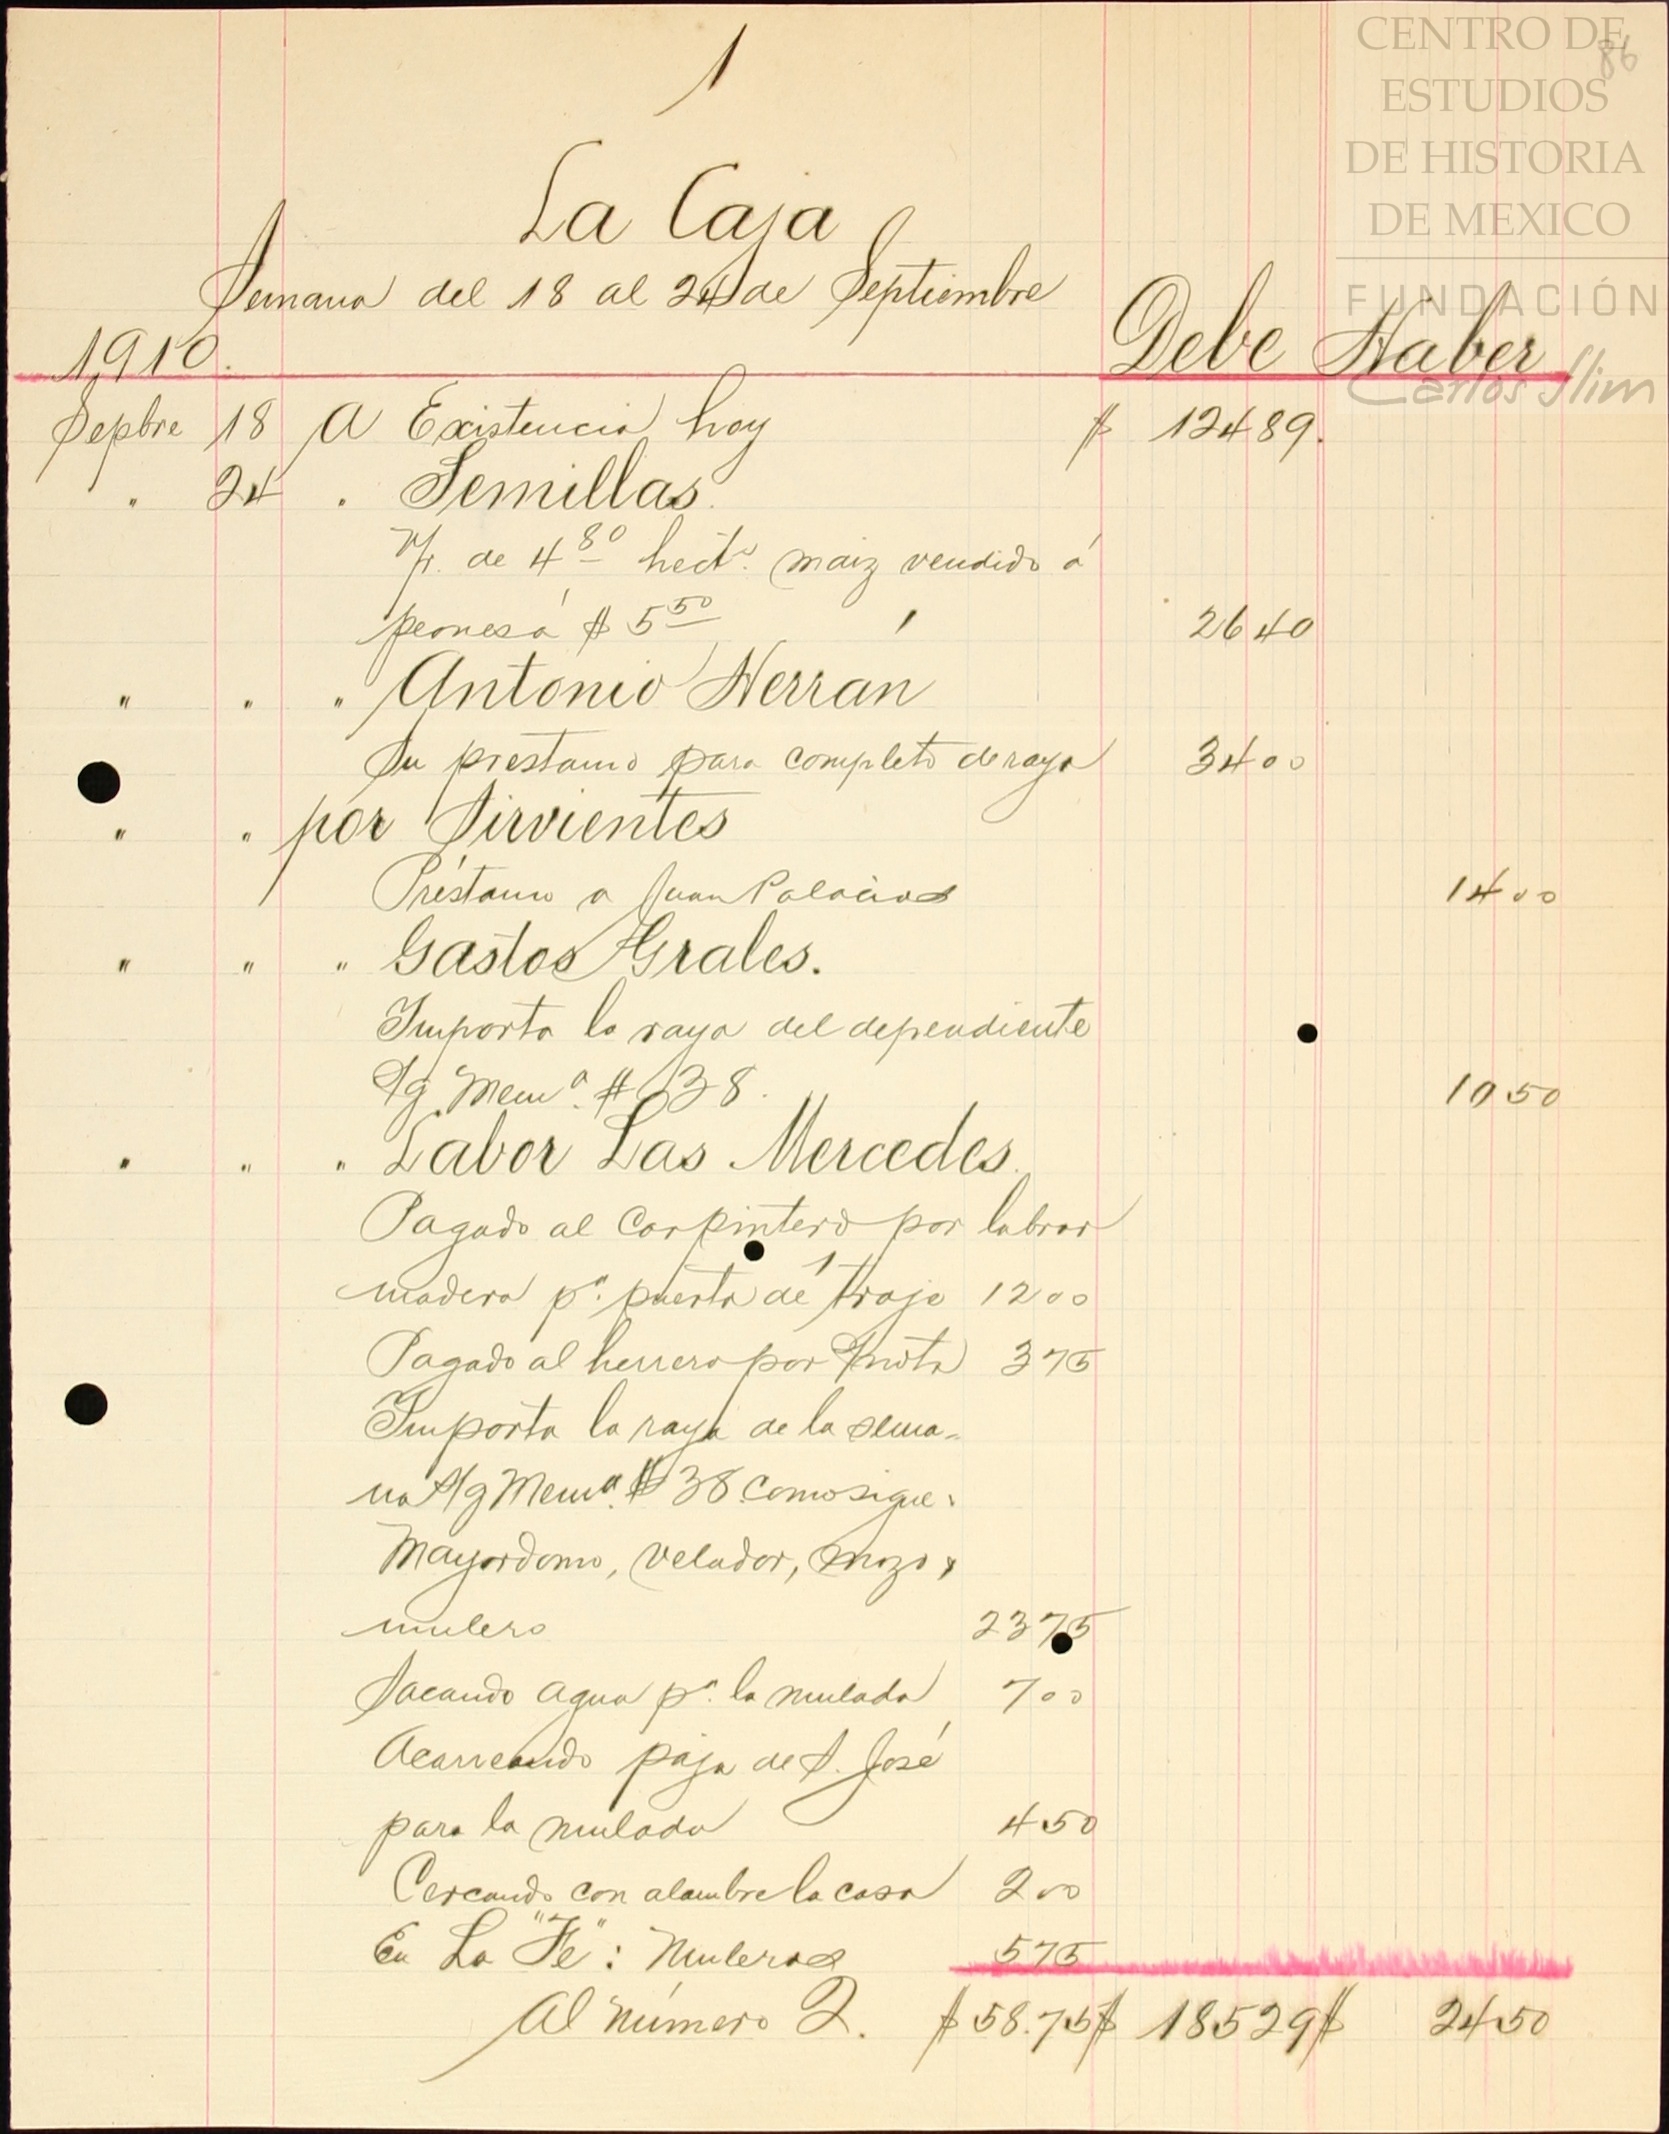 1
86
CENTRO DE
ESTUDIOS
DE HISTORIA
DE MEXICO
FUNDACIÓN
Carlos Slim
La Caja
Semana del 18 al 24 de Septiembre
1910. Debe Haber
Sepbre 18 A Existencia hoy $ 124 89.
" 24 " Semillas.
V/r. de 4 80 hects. maiz vendido á
peones á $ 5 50 26 40
" " " Antonio Herrán
Su préstamo para completo de raya 34 00
" " por Sirvientes
Préstamo a Juan Palacios 14 00
" " " Gastos Grales.
Importa la raya del dependiente
S/g Mema. # 38. 10 50
" " " Labor Las Mercedes.
Pagado al Carpintero por labrar
madera pa. puerta de troje 12 00
Pagado al herrero por nota 3 75
Importa la raya de la sema-
na S/g Mema. # 38 como sigue:
Mayordomo, velador, mozo y
mulero 23 75
Sacando agua pa. la mulada 7 00
Acarreando paja de S. José
para la mulada 4 50
Cercando con alambre la casa 2 00
En La "Fé": Muleros 5 75
Al número 2. $ 58.75 $ 185 29 $ 24 50